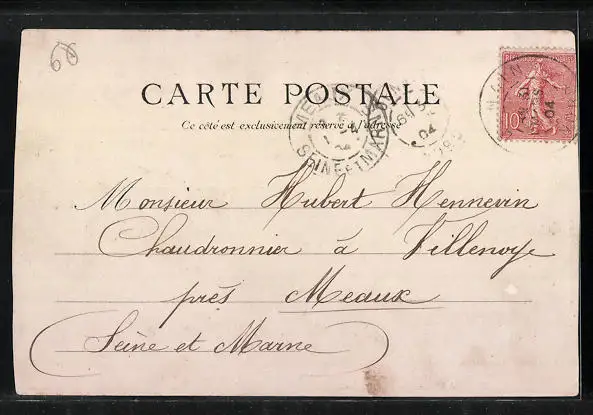 66
CARTE POSTALE
Ce côté est exclusivement réservé à l'adresse
10
04
SEINE ET MARNE
04
Monsieur Hubert Hennevin
Chaudronnier à Villenoye
près Meaux
Seine et Marne